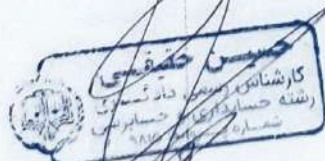 حسین حقیقی
کارشناس رسمی دادگستری
رشته حسابداری و حسابرسی
شماره